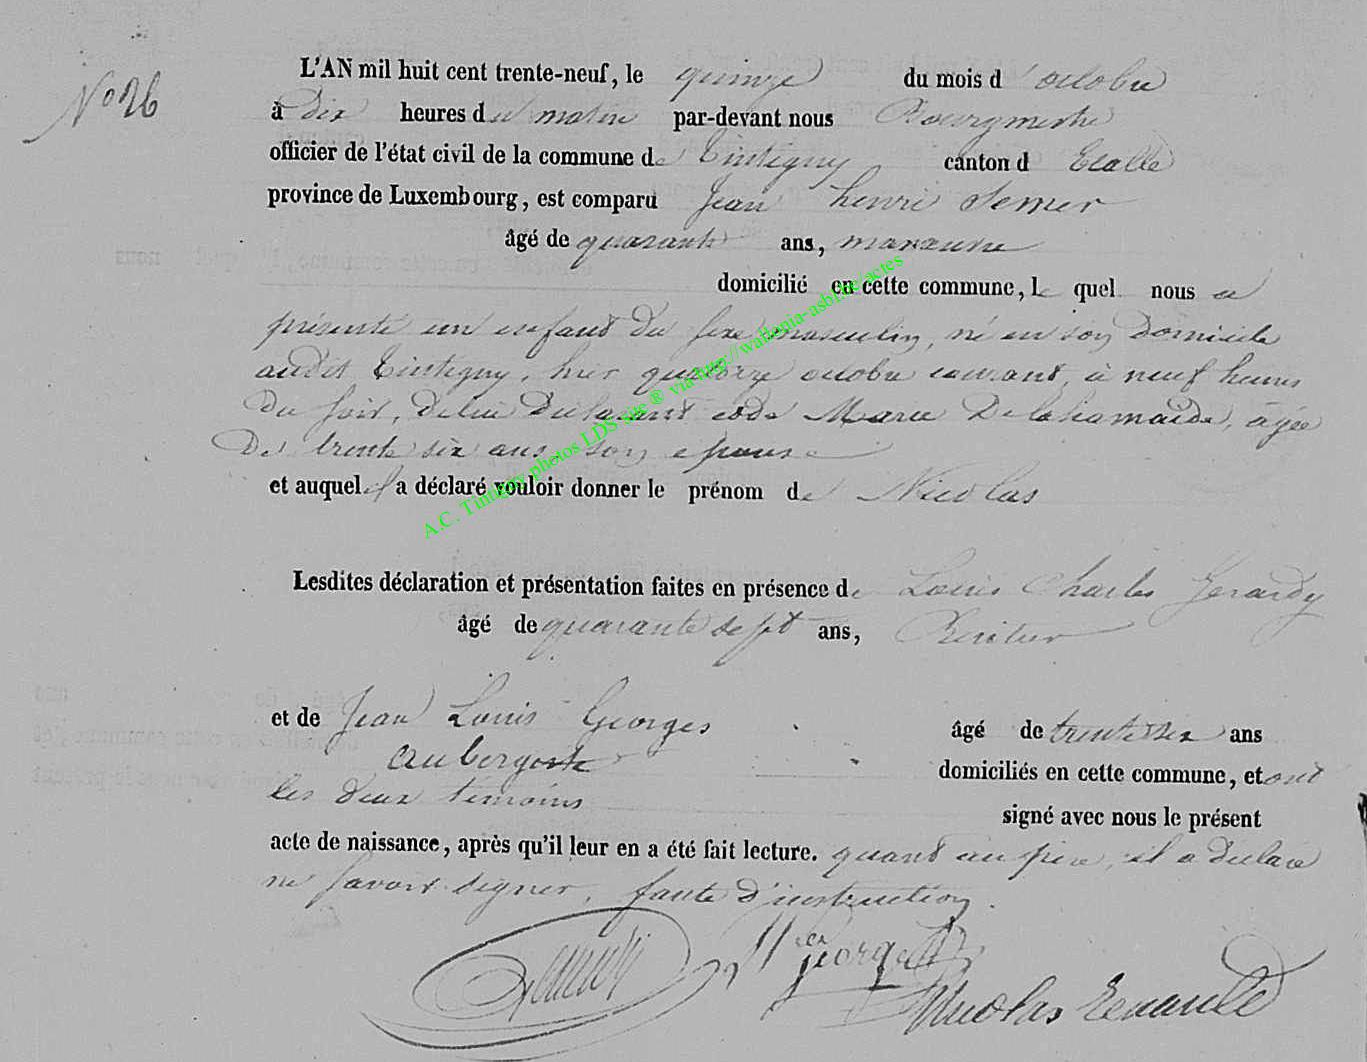 N° 26
L'AN mil huit cent trente-neuf, le quinze du mois d'octobre
à dix heures du matin par-devant nous Bourgmestre
officier de l'état civil de la commune de Tintigny canton d Etalle
province de Luxembourg, est comparu Jean henri
âgé de quarante ans, manœuvre
domicilié en cette commune, le quel nous a
présenté un enfant du sexe masculin, né en son domicile
audit Tintigny, hier quatorze octobre courant, à neuf heures
du soir, de lui déclarant et de Marie Delahamaide, âgée
de trente six ans, son épouse
et auquel il a déclaré vouloir donner le prénom de Nicolas
Lesdites déclaration et présentation faites en présence de Louis Charles Gerardy
âgé de quarante sept ans, Rentier
et de Jean Louis Georges âgé de trente six ans
aubergiste domiciliés en cette commune, et ont
les deux témoins signé avec nous le présent
acte de naissance, après qu'il leur en a été fait lecture. quant au père, il a déclaré
ne savoir signer, faute d'instruction.
Georges
Nicolas
A.C. Tintigny photos LDS site ® via http://wallonia-asbl.be/actes